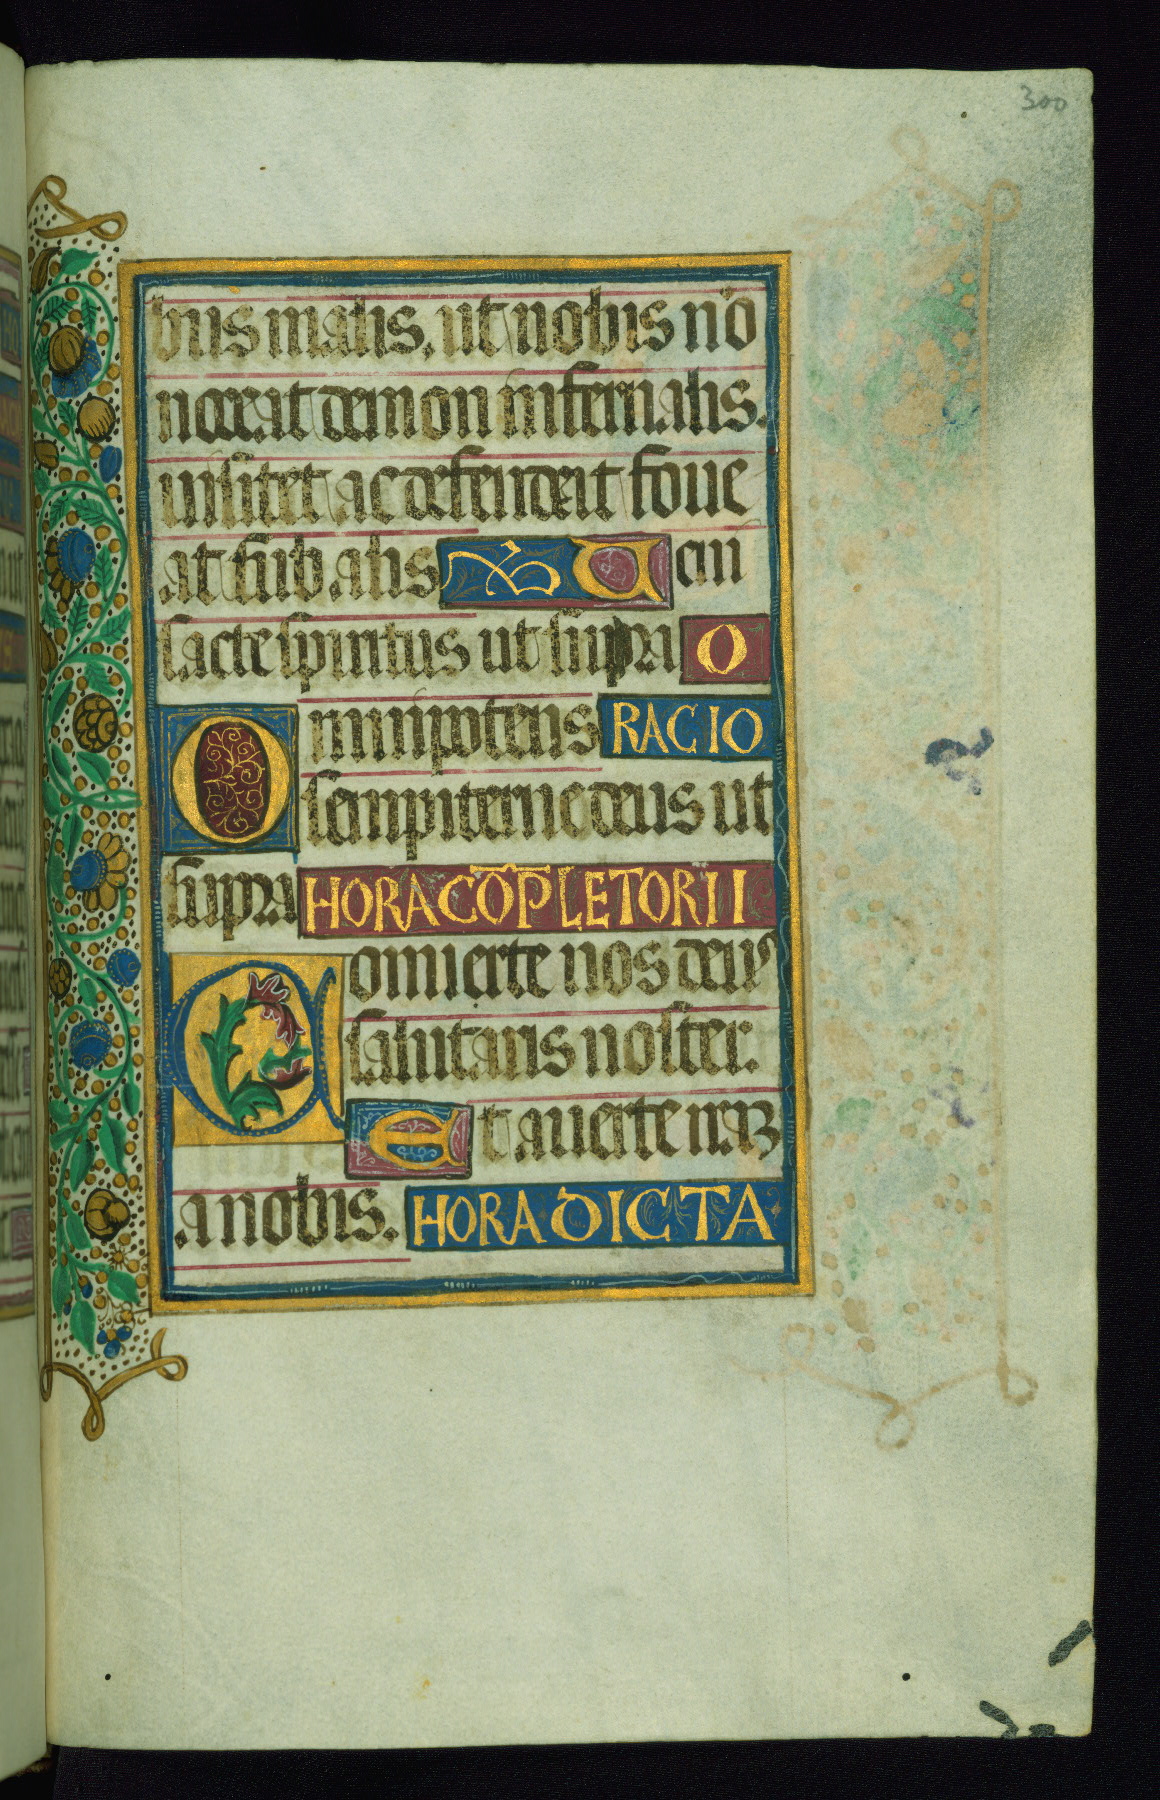 300
bus malis. ut nobis nō
noceat demon infernalis.
uisitet ac defendeat foue
at sub alis V eni
sācte spiritus ut supra O
Omnipotens RACIO
sempiterne deus ut
supra HORA CŌPLETORII
Conuerte nos deus
salutaris noster.
Et auerte iraꝫ
a nobis. HORA DICTA